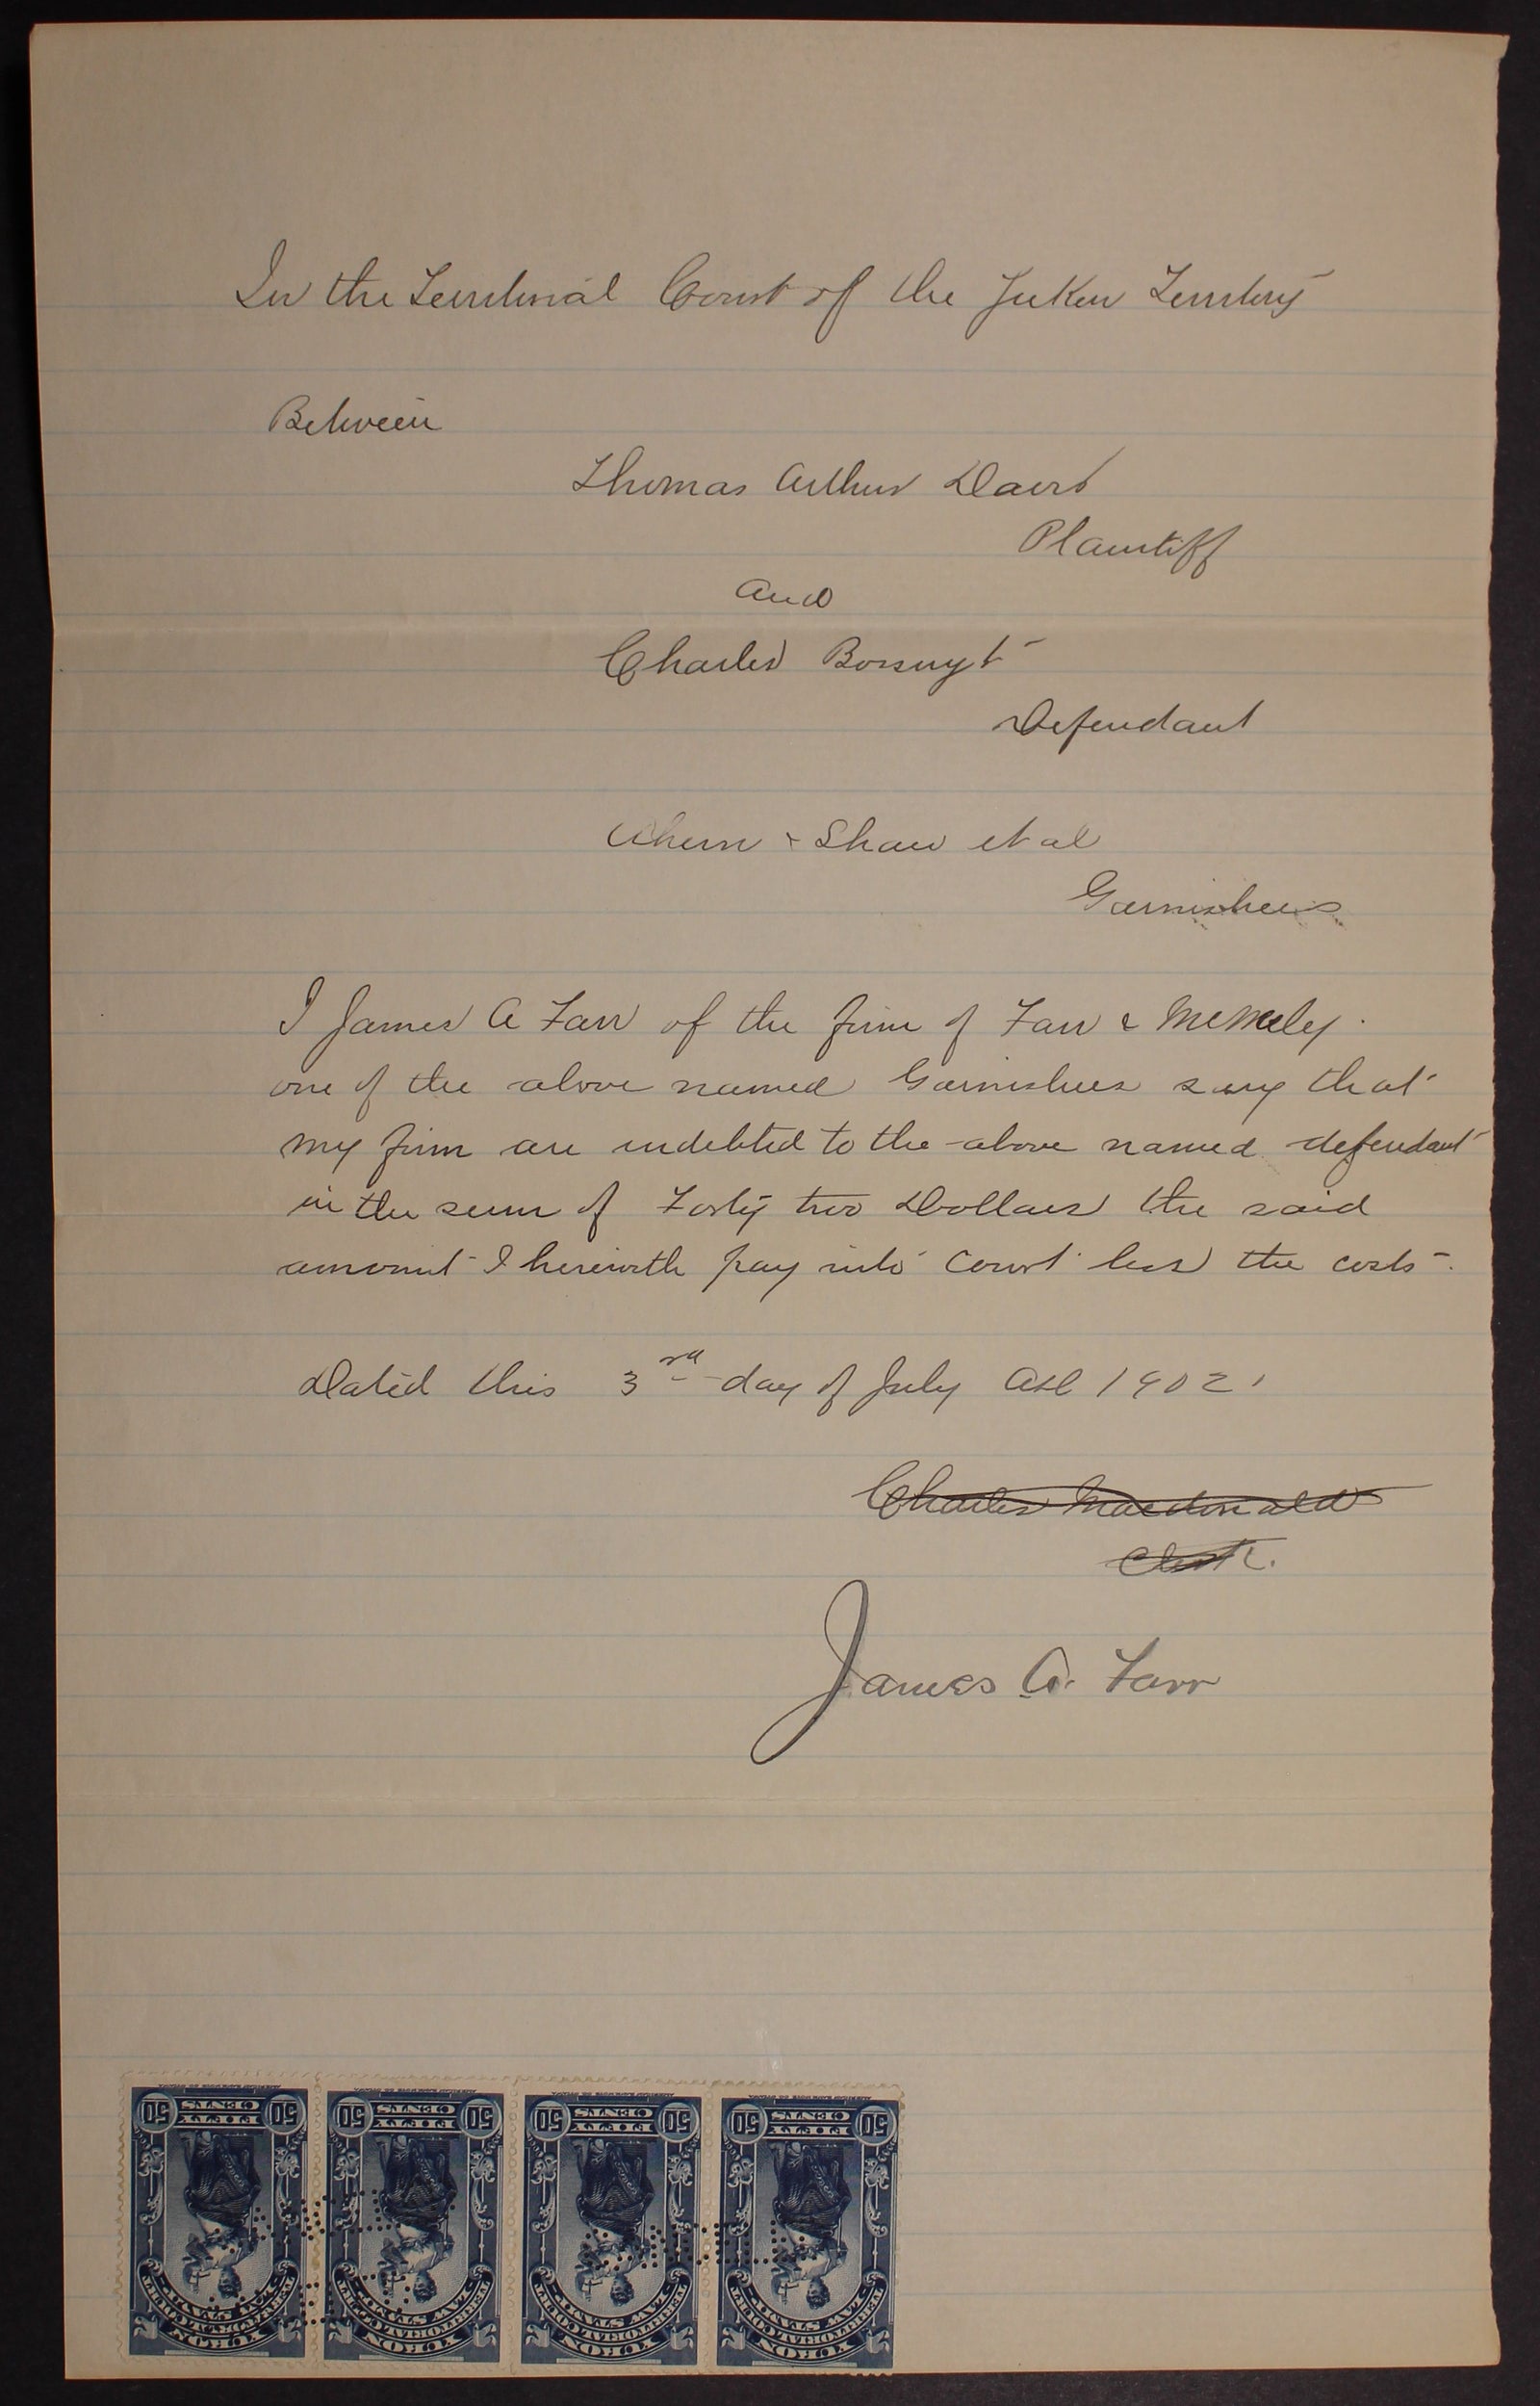 In the Territorial Court of the Yukon Territory
Between
Thomas Arthur David
Plaintiff
and
Charles Bossuyt
Defendant
Ahern & Shaw et al
Garnishees
I James A Farr of the firm of Farr & McNeeley
one of the above named Garnishees say that
my firm are indebted to the above named defendant
in the sum of Forty two Dollars the said
amount I herewith pay into Court less the costs.
Dated this 3rd day of July AD 1902.
Charles Macdonald
Clerk.
James A. Farr
50 50 50 50 50 50 50 50
CENTS CENTS CENTS CENTS
YUKON YUKON YUKON YUKON